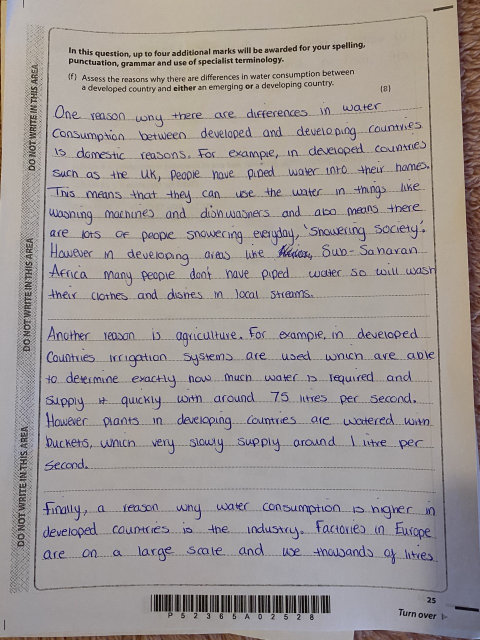 In this question, up to four additional marks will be awarded for your spelling,
punctuation, grammar and use of specialist terminology.
(f) Assess the reasons why there are differences in water consumption between
a developed country and either an emerging or a developing country.
(8)
One reason why there are differences in water
consumption between developed and developing countries
is domestic reasons. For example, in developed countries
such as the UK, people have piped water into their homes.
This means that they can use the water in things like
washing machines and dishwashers and also means there
are lots of people showering everyday, 'Showering Society'.
However in developing areas like Sub-Saharan
Africa many people don't have piped water so will wash
their clothes and dishes in local streams.
Another reason is agriculture. For example, in developed
countries irrigation systems are used which are able
to determine exactly how much water is required and
supply it quickly with around 75 litres per second.
However plants in developing countries are watered with
buckets, which very slowly supply around 1 litre per
second.
Finally, a reason why water consumption is higher in
developed countries is the industry. Factories in Europe
are on a large scale and use thousands of litres
DO NOT WRITE IN THIS AREA
DO NOT WRITE IN THIS AREA
DO NOT WRITE IN THIS AREA
P52365A02528
25
Turn over